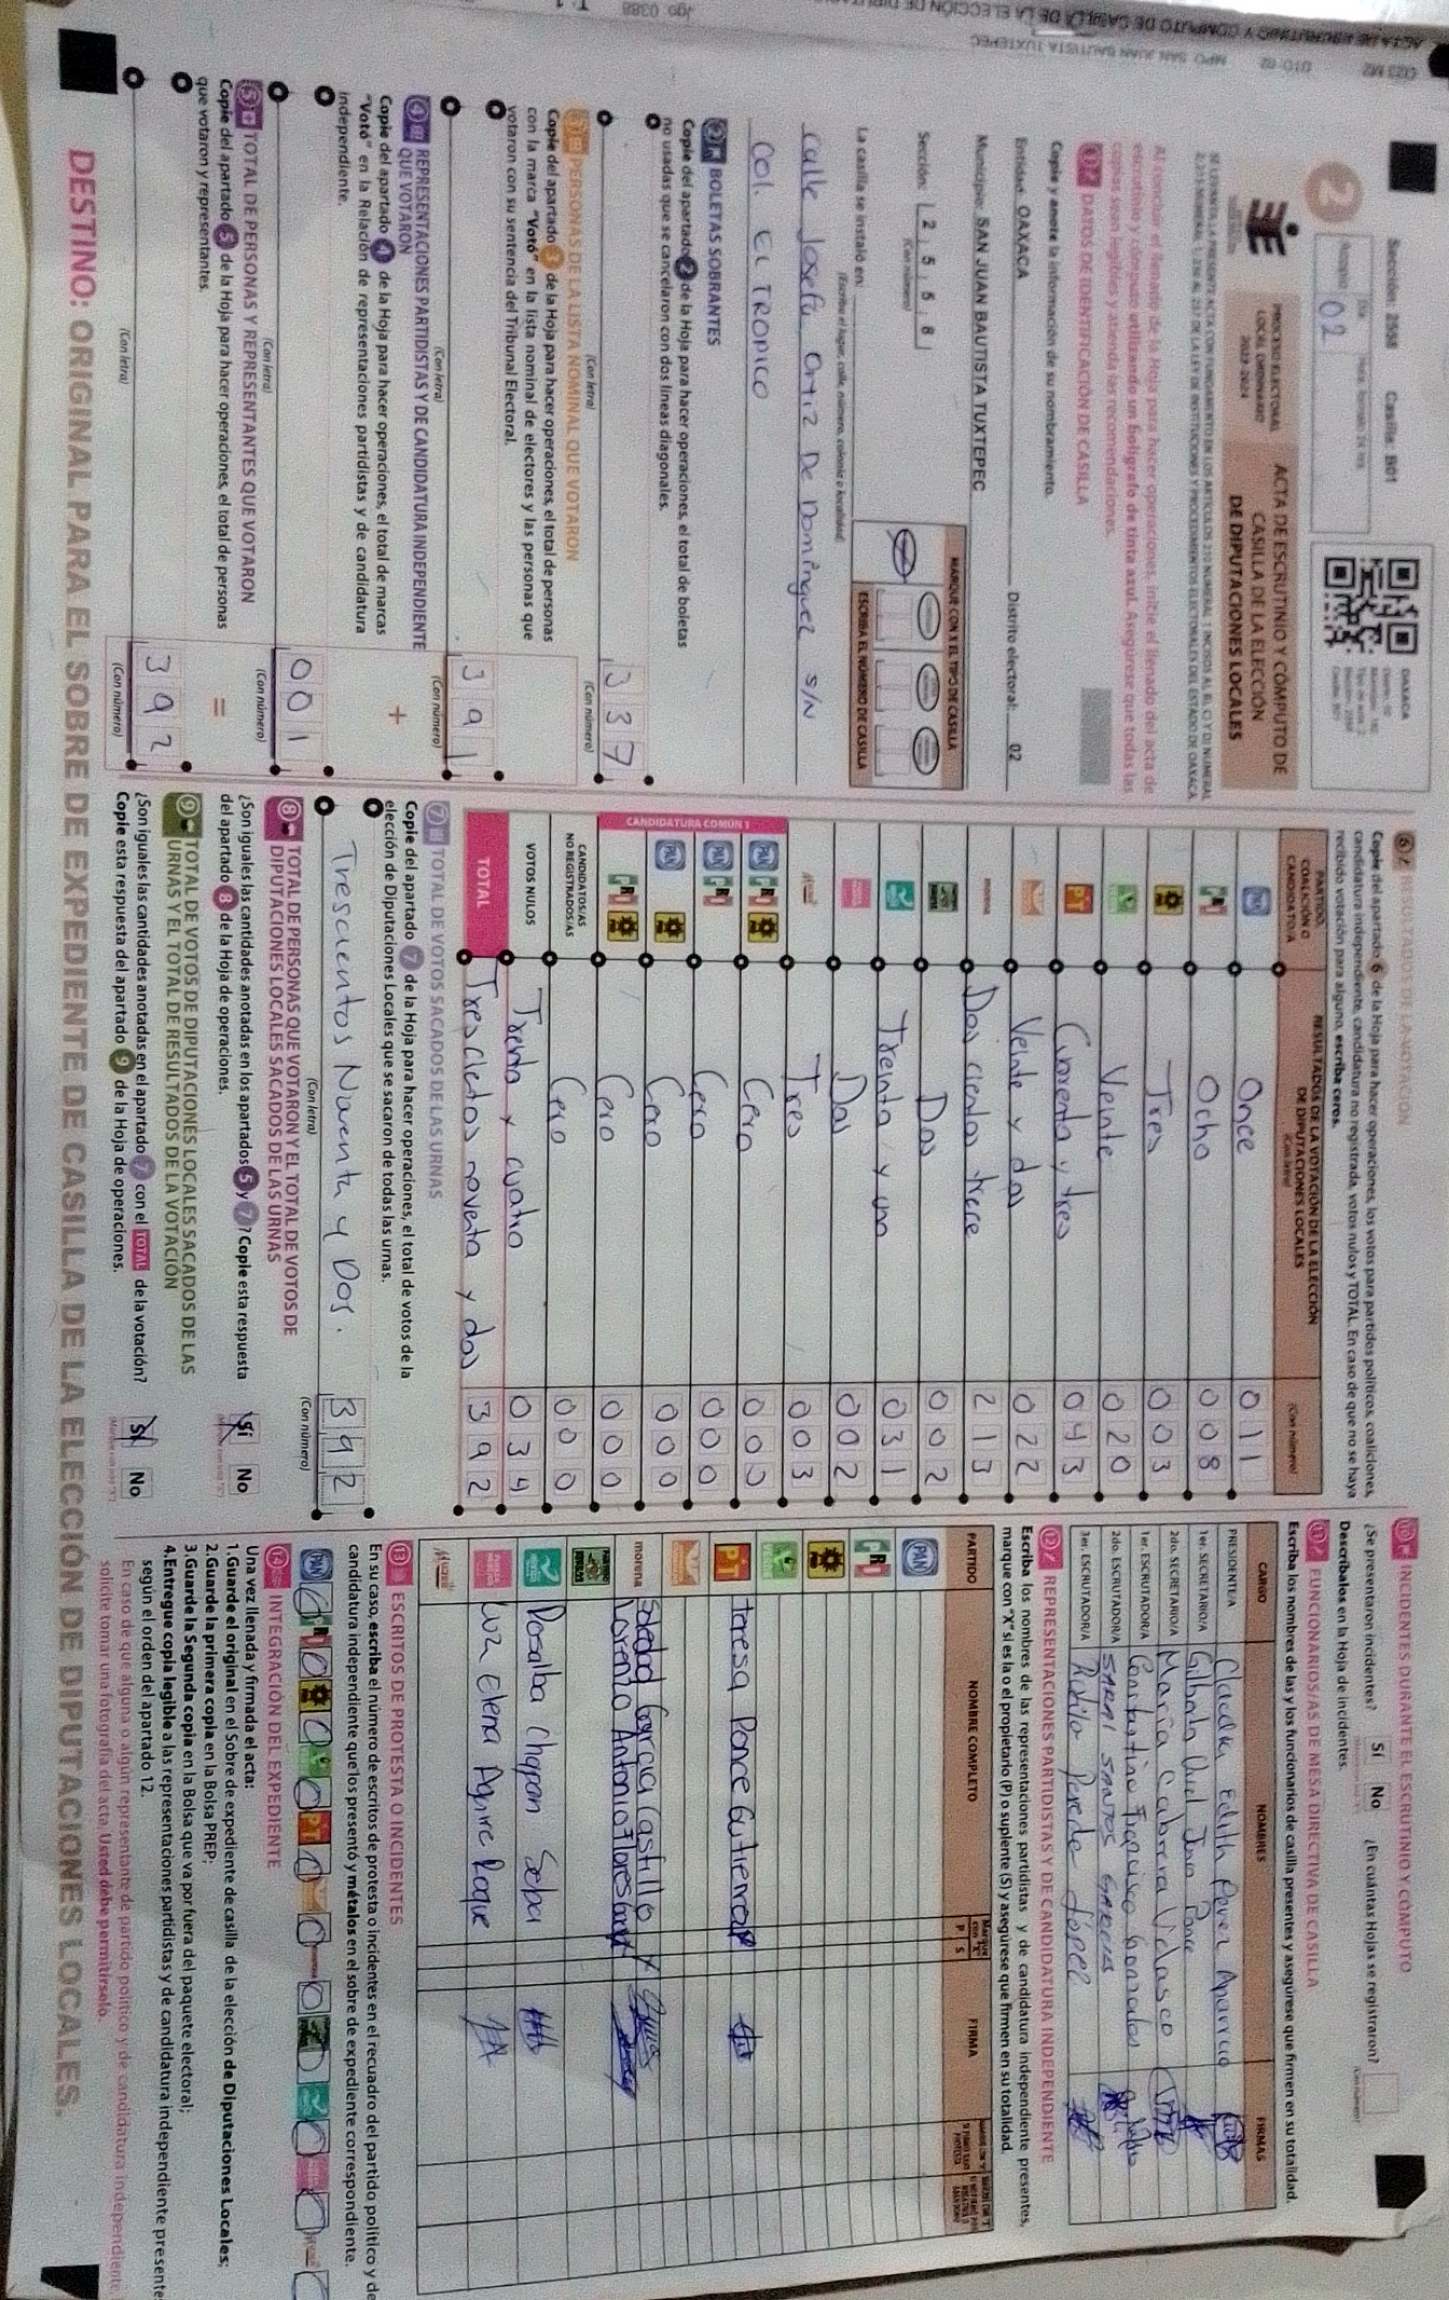 Sección: 2558 Casilla: B01
OAXACA
2
02
PROCESO ELECTORAL
LOCAL ORDINARIO
2023-2024
ACTA DE ESCRUTINIO Y CÓMPUTO DE
CASILLA DE LA ELECCIÓN
DE DIPUTACIONES LOCALES
Al concluir el llenado de la Hoja para hacer operaciones, inicie el llenado del acta de
escrutinio y cómputo utilizando un bolígrafo de tinta azul. Asegúrese que todas las
copias sean legibles y atienda las recomendaciones.
1 DATOS DE IDENTIFICACIÓN DE CASILLA
Copie y anote la información de su nombramiento.
Entidad: OAXACA Distrito electoral: 02
Municipio: SAN JUAN BAUTISTA TUXTEPEC
Sección: 2 5 5 8
(Con número)
MARQUE CON X EL TIPO DE CASILLA
ESCRIBA EL NÚMERO DE CASILLA
La casilla se instaló en:
(Escriba el lugar, calle, número, colonia o localidad)
calle Josefa Ortiz De Dominguez S/N
Col. EL TROPICO
2 BOLETAS SOBRANTES
Copie del apartado 2 de la Hoja para hacer operaciones, el total de boletas
no usadas que se cancelaron con dos líneas diagonales.
337
(Con letra) (Con número)
3 PERSONAS DE LA LISTA NOMINAL QUE VOTARON
Copie del apartado 3 de la Hoja para hacer operaciones, el total de personas
con la marca "Votó" en la lista nominal de electores y las personas que
votaron con su sentencia del Tribunal Electoral.
391
(Con letra) (Con número)
4 REPRESENTACIONES PARTIDISTAS Y DE CANDIDATURA INDEPENDIENTE
QUE VOTARON
+
Copie del apartado 4 de la Hoja para hacer operaciones, el total de marcas
"Votó" en la Relación de representaciones partidistas y de candidatura
independiente.
001
(Con letra) (Con número)
5 TOTAL DE PERSONAS Y REPRESENTANTES QUE VOTARON
=
Copie del apartado 5 de la Hoja para hacer operaciones, el total de personas
que votaron y representantes.
392
(Con letra) (Con número)
6 RESULTADOS DE LA VOTACIÓN
Copie del apartado 6 de la Hoja para hacer operaciones, los votos para partidos políticos, coaliciones,
candidatura independiente, candidatura no registrada, votos nulos y TOTAL. En caso de que no se haya
recibido votación para alguno, escriba ceros.
PARTIDO, COALICIÓN O CANDIDATO/A
RESULTADOS DE LA VOTACIÓN DE LA ELECCIÓN DE DIPUTACIONES LOCALES
(Con letra) (Con número)
PAN Once 011
PRI Ocho 008
Tres 003
Veinte 020
PT Cuarenta y tres 043
Veinte y dos 022
morena Dos cientos trece 213
Dos 002
Treinta y uno 031
Dos 002
Tres 003
CANDIDATURA COMÚN 1
PAN PRI Cero 000
PAN PRI Cero 000
PAN Cero 000
PRI Cero 000
CANDIDATOS/AS NO REGISTRADOS/AS Cero 000
VOTOS NULOS Treinta y cuatro 034
TOTAL Tres Cientos noventa y dos 392
7 TOTAL DE VOTOS SACADOS DE LAS URNAS
Copie del apartado 7 de la Hoja para hacer operaciones, el total de votos de la
elección de Diputaciones Locales que se sacaron de todas las urnas.
Trescientos Noventa y Dos. 392
(Con letra) (Con número)
8 TOTAL DE PERSONAS QUE VOTARON Y EL TOTAL DE VOTOS DE
DIPUTACIONES LOCALES SACADOS DE LAS URNAS
¿Son iguales las cantidades anotadas en los apartados 5 y 7? Copie esta respuesta
del apartado 8 de la Hoja de operaciones.
Sí No
9 TOTAL DE VOTOS DE DIPUTACIONES LOCALES SACADOS DE LAS
URNAS Y EL TOTAL DE RESULTADOS DE LA VOTACIÓN
¿Son iguales las cantidades anotadas en el apartado 7 con el TOTAL de la votación?
Copie esta respuesta del apartado 9 de la Hoja de operaciones.
Sí No
10 INCIDENTES DURANTE EL ESCRUTINIO Y CÓMPUTO
¿Se presentaron incidentes? Sí No ¿En cuántas Hojas se registraron?
Descríbalos en la Hoja de incidentes.
11 FUNCIONARIOS/AS DE MESA DIRECTIVA DE CASILLA
Escriba los nombres de las y los funcionarios de casilla presentes y asegúrese que firmen en su totalidad.
CARGO NOMBRES FIRMAS
PRESIDENTE/A Claudia Edith Perez Aparicio
1er. SECRETARIO/A
2do. SECRETARIO/A Maria Cabrera Velasco
1er. ESCRUTADOR/A Constantino Francisco Gonzales
2do. ESCRUTADOR/A SARAI SANTOS
3er. ESCRUTADOR/A
12 REPRESENTACIONES PARTIDISTAS Y DE CANDIDATURA INDEPENDIENTE
Escriba los nombres de las representaciones partidistas y de candidatura independiente presentes,
marque con "X" si es la o el propietario (P) o suplente (S) y asegúrese que firmen en su totalidad.
PARTIDO NOMBRE COMPLETO P S FIRMA
PAN
PRI
PT Teresa Ponce Gutierrez
morena Soledad Garcia Castillo X
Lorenzo Antonio Flores
Rosalba Chapan Seba
Luz Elena Aguirre Roque
13 ESCRITOS DE PROTESTA O INCIDENTES
En su caso, escriba el número de escritos de protesta o incidentes en el recuadro del partido político y de
candidatura independiente que los presentó y métalos en el sobre de expediente correspondiente.
PAN PRI PT
14 INTEGRACIÓN DEL EXPEDIENTE
Una vez llenada y firmada el acta:
1.Guarde el original en el Sobre de expediente de casilla de la elección de Diputaciones Locales;
2.Guarde la primera copia en la Bolsa PREP;
3.Guarde la Segunda copia en la Bolsa que va por fuera del paquete electoral;
4.Entregue copia legible a las representaciones partidistas y de candidatura independiente presente
según el orden del apartado 12.
En caso de que alguna o algún representante de partido político y de candidatura independiente
solicite tomar una fotografía del acta, Usted debe permitírselo.
DESTINO: ORIGINAL PARA EL SOBRE DE EXPEDIENTE DE CASILLA DE LA ELECCIÓN DE DIPUTACIONES LOCALES.